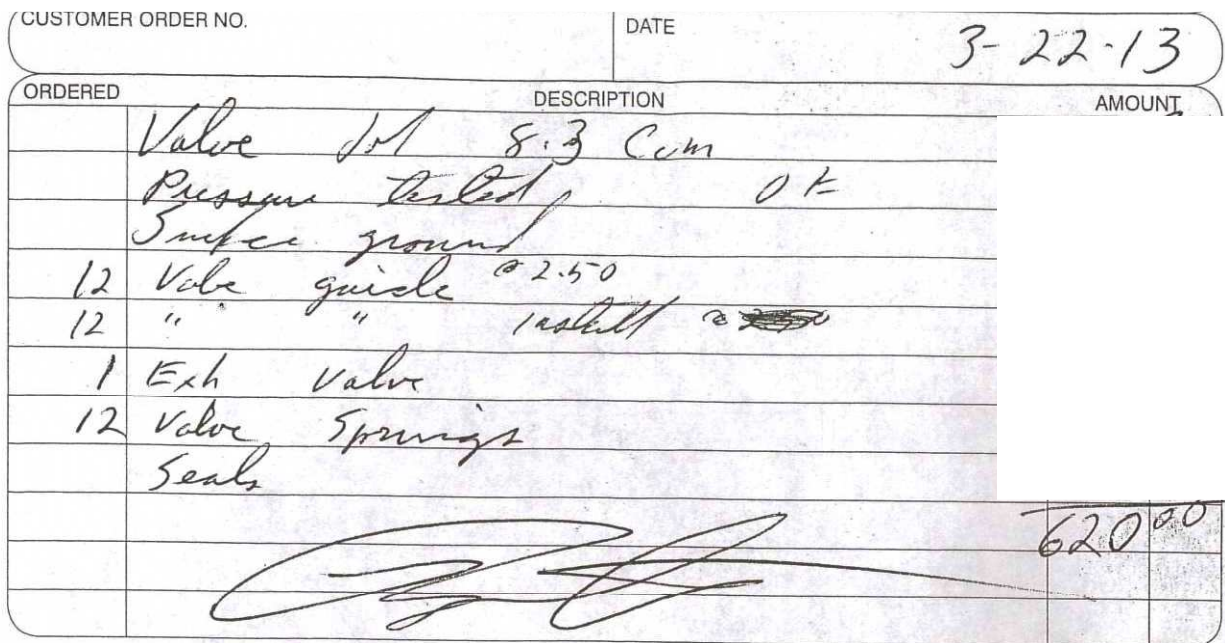 CUSTOMER ORDER NO. DATE 3-22-13
ORDERED DESCRIPTION AMOUNT
Valve 8.3 Cum
Pressure tested OK
Surface ground
12 Valve guide @ 2.50
12 " " install @
1 Exh Valve
12 Valve Springs
Seals
620 00